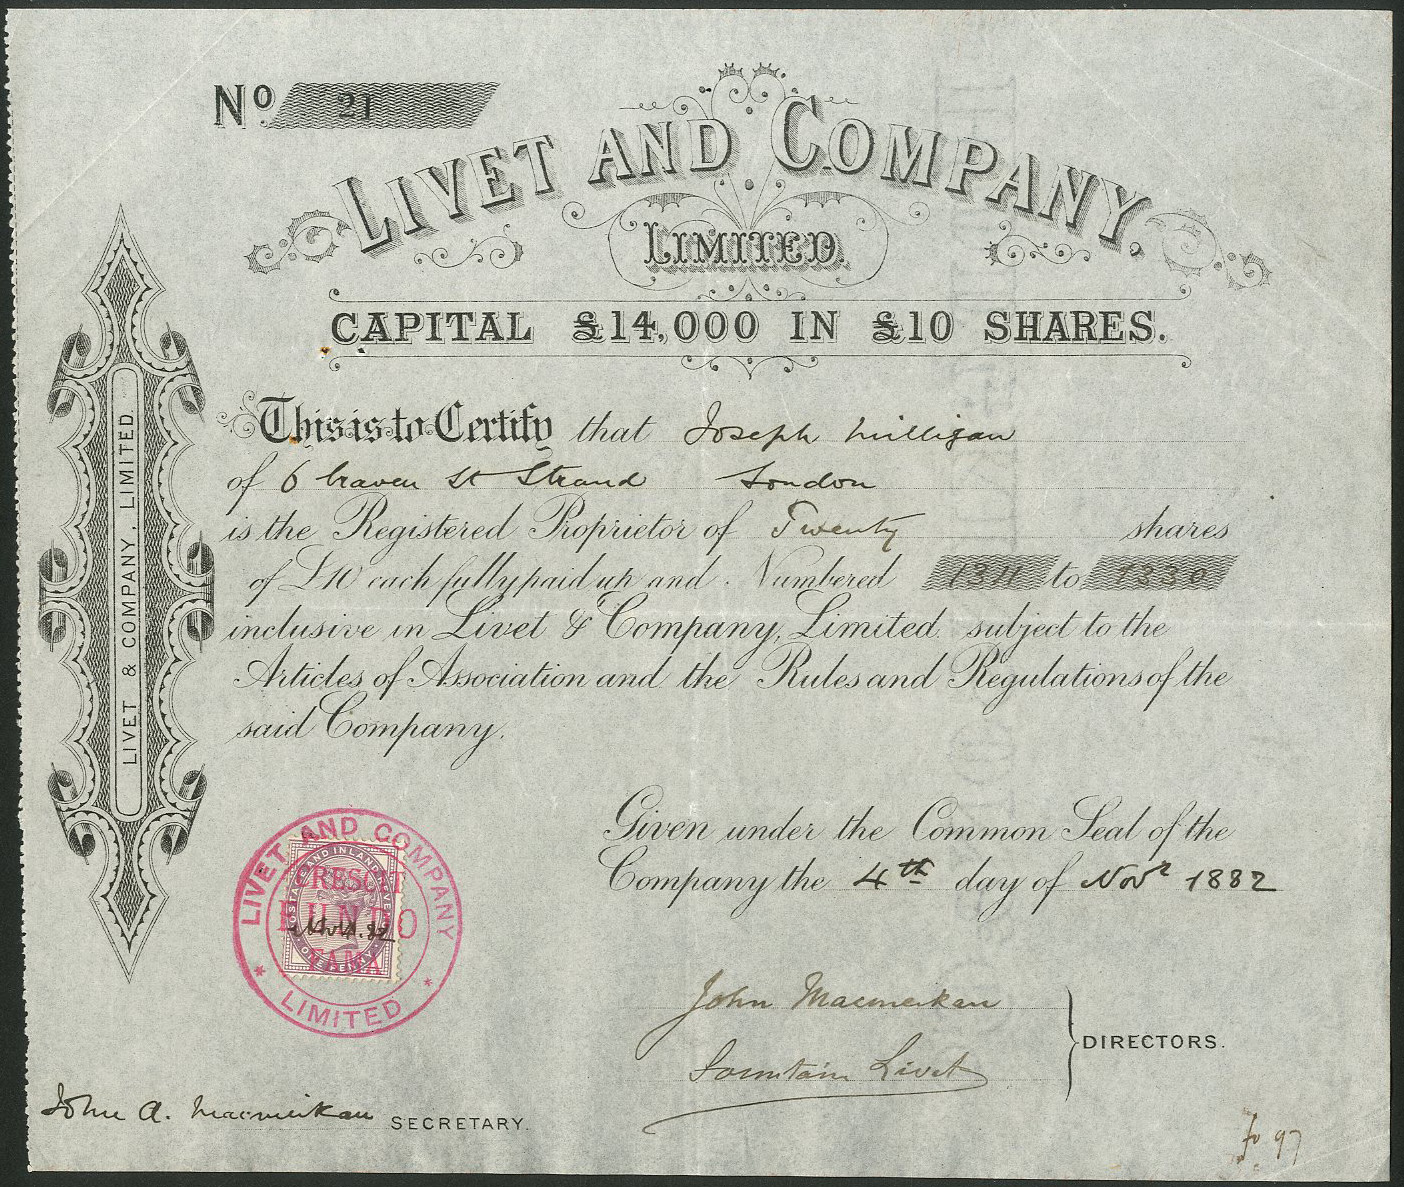 No. 21
LIVET AND COMPANY,
LIMITED.
CAPITAL £14,000 IN £10 SHARES.
LIVET & COMPANY, LIMITED.
This is to Certify that Joseph Milligan
of 6 Craven St Strand London
is the Registered Proprietor of Twenty shares
of £10 each fully paid up and Numbered 1311 to 1330
inclusive in Livet & Company, Limited subject to the
Articles of Association and the Rules and Regulations of the
said Company.
Given under the Common Seal of the
Company the 4th day of Novr 1882
LIVET AND COMPANY
LIMITED
POSTAGE AND INLAND REVENUE
ONE PENNY
CRESCIT
EUNDO
FAMA
Nov 4. 82
John Macmeikan
Fountain Livet
DIRECTORS.
John A. Macmeikan SECRETARY.
97